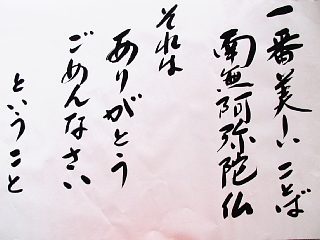 一番美しいことば
南無阿弥陀仏
それは
ありがとう
ごめんなさい
ということ